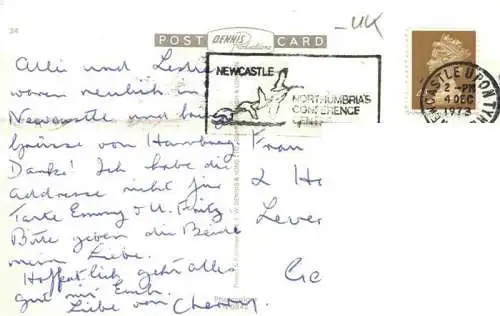 34
- UK
POST DENNIS Productions CARD
NEWCASTLE
NORTHUMBRIA'S
CONFERENCE
NEWCASTLE UPON TYNE
2 - PM
4 DEC
1973
Alli und Leslie
waren neulich in
Newcastle und
Grüsse von Hamburg
Danke! Ich habe die
Addresse nicht für
Tante Emmy & U. Fritz
Bitte geben die Beide
mein Liebe.
Hoffentlich geht alles
gut mit Euch.
Liebe von Cherry
Frau
2 Ho
Lever
Ge